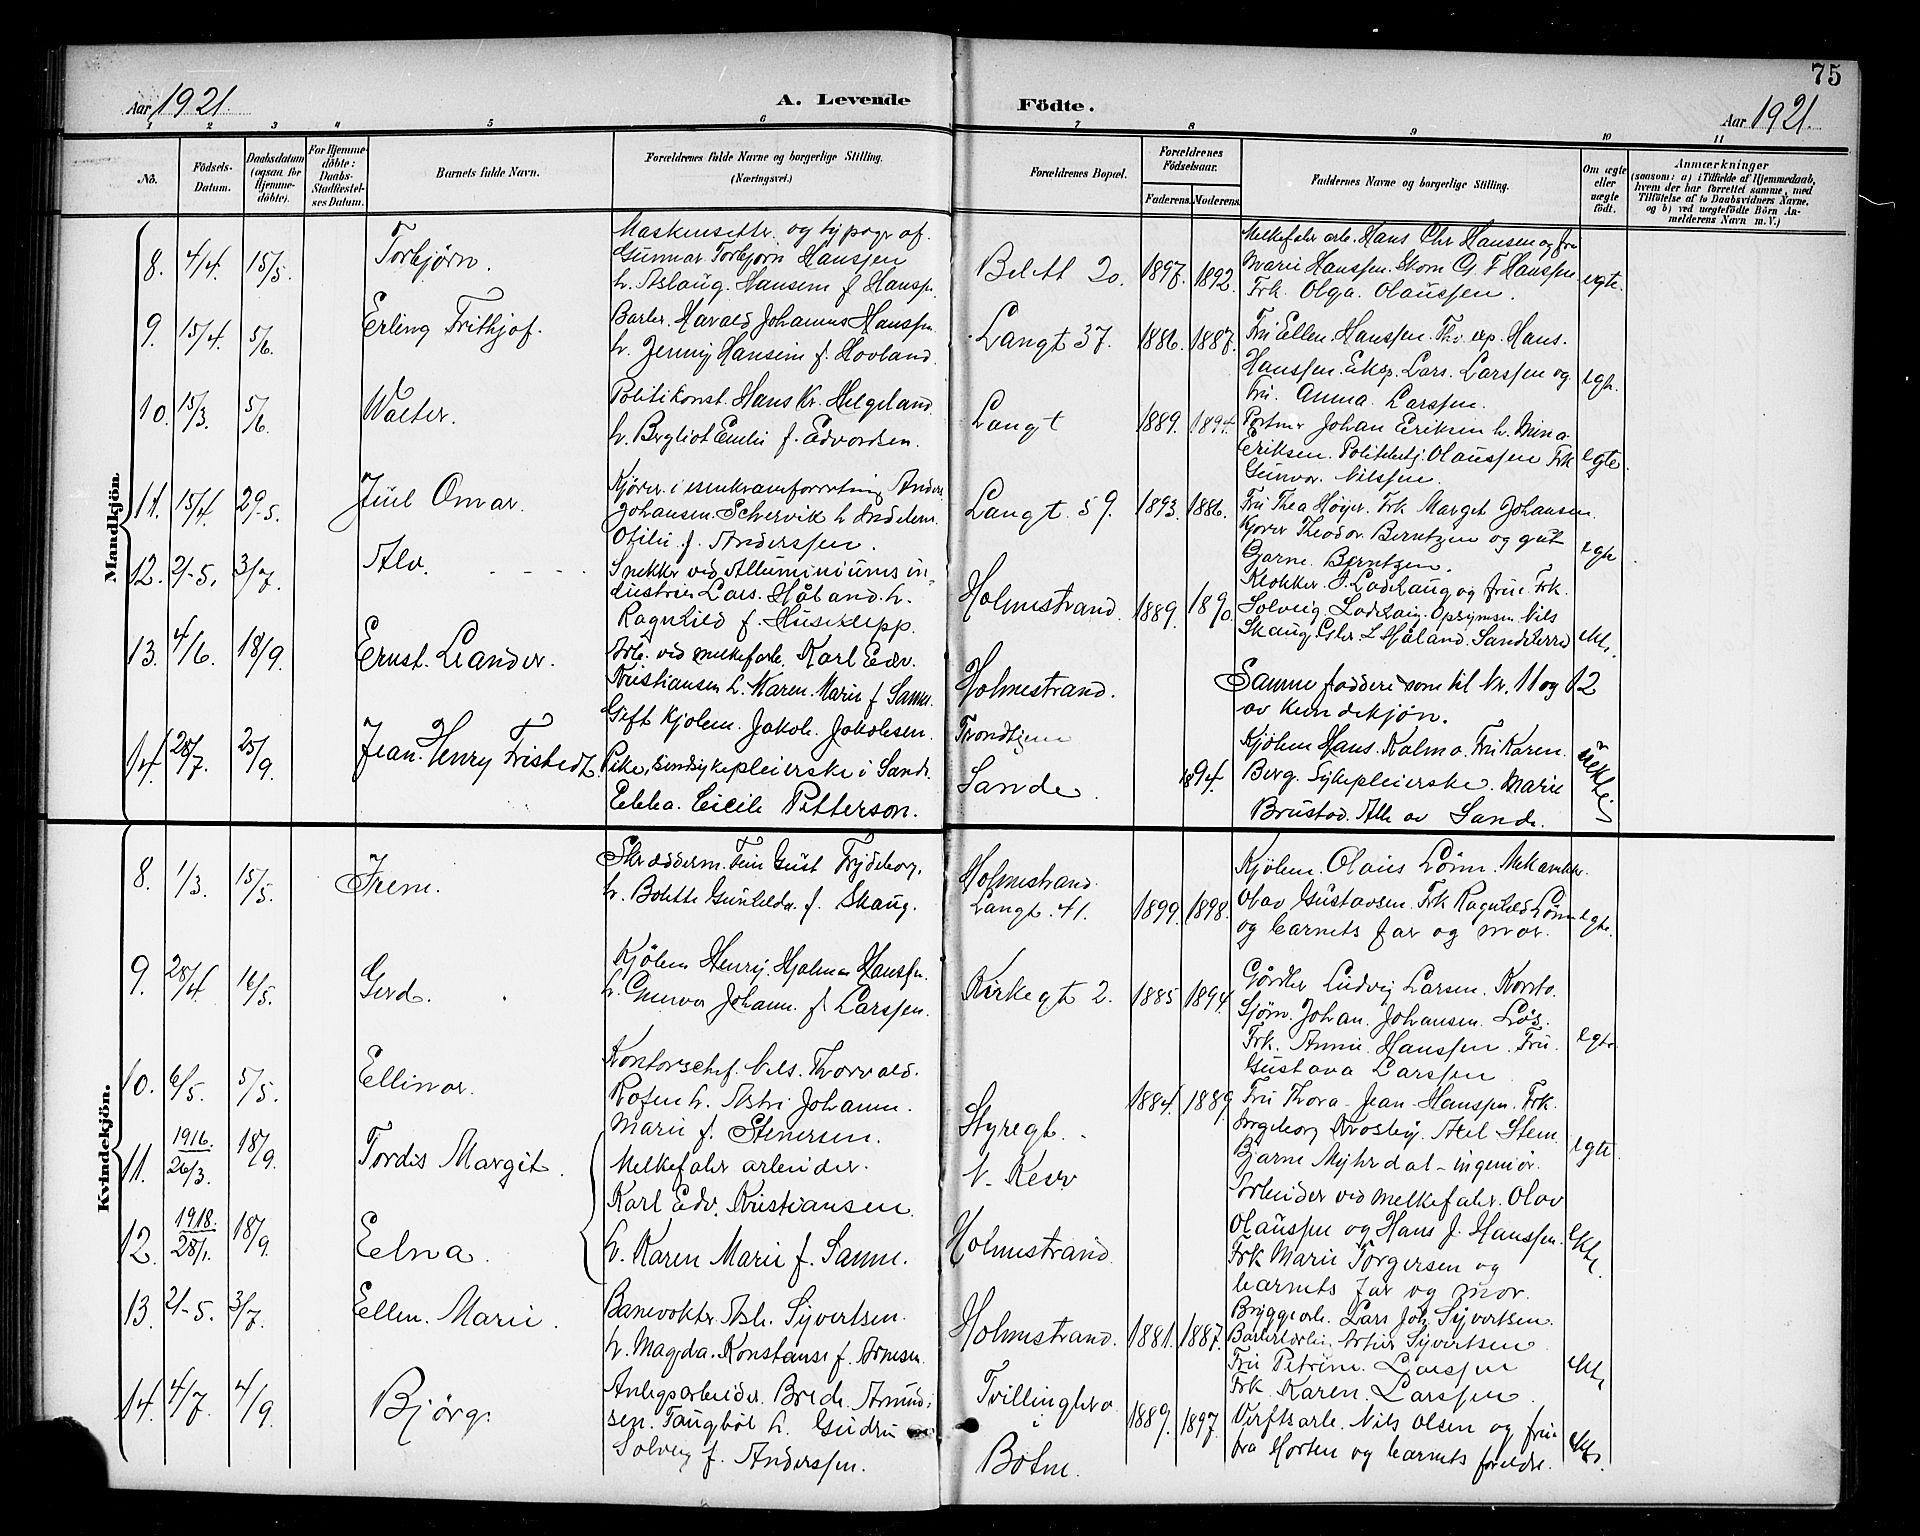 75
Aar 1921.
A. Levende Födte.
Aar 1921.
1 2 3 4 5 6 7 8 9 10 11
No.
Födsels-Datum.
Daabsdatum (ogsaa for Hjemme-döbte).
For Hjemme-döbte: Daabs-Stadfæstel-ses Datum.
Barnets fulde Navn.
Forældrenes fulde Navne og borgerlige Stilling.
(Næringsvei.)
Forældrenes Bopæl.
Forældrenes Födselsaar.
Faderens. Moderens.
Faddernes Navne og borgerlige Stilling.
Om ægte eller uægte födt.
Anmærkninger
(saasom: a) i Tilfælde af Hjemmedaab, hvem der har forrettet samme, med Tilföielse af to Daabsvidners Navne, og b) ved uægtefödte Börn An-melderens Navn m. V.)
Mandkjön.
8. 4/4. 15/5. Torbjørn.
Maskinsetter og typogr af.
Gunnar Torbjørn Hanssen
h. Aslaug. Hansine f Hanssn.
Belett 20. 1897. 1892.
Melkefabr arb. Hans Chr Hansen og fru
Marie Hanssen. Skom O. F Hanssen
Frk. Olga. Olaussen. egte.
9. 15/4. 5/6. Erling Frithjof.
Barber. Harald Johannes Hanssen
h. Jenny Hansine f. Hovland.
Langt 37. 1886. 1887.
Fru Ellen Hanssen. Th. exp. Hans.
Hanssen. Eksp. Lars. Larssen og
Fru. Anna. Larssen. egte.
10. 15/3. 5/6. Walter.
Politikonst. Hans Kr. Helgeland.
h. Bergliot Emilie f. Edvardsen.
Langt 1889. 1894.
Postmr Johan Eriksen h. Mina
Eriksen. Politibetj. Olaussen Frk
Gunvor. Nilssen. egte.
11. 15/4. 29-5. Juul Omar.
Kjører i isenkramforretning Anders
Johansen. Schervik h
Otilie f. Anderssen.
Langt. 59. 1893. 1886.
Fru Thea Høyer. Frk Marget Johansen
Kjører Theodor Berntzen og gut
Bjarne. Berntzen. egte
12. 21-5. 3/7. Alv.
Snekker ved Alluminiums in-
dustrien Lars. Håland. h.
Ragnhild f. Huseklepp.
Holmestrand. 1889. 1890.
Klokker. J. Ladehaug og frue Frk.
Solveig. Ladehaug. Opsynsm Nils
Skaug. L Håland. Sandsværd ekte.
13. 4/6. 18/9. Ernst. Leander.
Arb. ved melkefabr. Karl Edv.
Kristiansen h. Karen. Marie f Sanne.
Holmestrand.
Samme faddere som til Nr. 11 og 12
av kvindekjøn.
14 28/7. 25/9. Jean. Henry Tristedt.
Gift Kjøbm. Jakob. Jakobsen.
Pike, sindsykepleierske i Sande.
Ebba. Cicile Petterson.
Trondhjem
Sande. 1894.
Kjøbm Hans. Kalmo. Fru Karen.
Berg. Sykepleierske. Marie
Brustad. Alle av Sande. uekte
Kvindekjön.
8. 1/3. 15/5. Irene.
Skrædderm. Fein Gust Frydeborg,
h. Bolette Gunhilda f. Skaug.
Holmestrand.
Langt. 41. 1899. 1898.
Kjøbm. Olaus Lønn. Mekaniker.
Olav Gustavsen. Frk Ragnhild Lønn
og barnets far og mor. egte.
9. 28/4 16/5. Gerd.
Kjøbm Henry. Hjalmar Hanssen.
h. Gunvor Johann. f Larssen.
Kirkegt 2. 1885 1894.
Gårdbr Ludvig Larsen. Korsto.
Sjøm. Johan. Johansen. Løs.
Frk. Annie Hanssen. Fru.
Gustava Larssen. egte.
10. 6/5. 5/5. Ellinor.
Kontorschef. Nils. Thorvald.
Rosen h. Astri Johanne.
Marie f. Stenersen.
Styregt. 1884. 1889.
Fru Thora Jean Hanssen. Frk.
Ingeborg Krosby. Axel Stem
Bjarne Myhrdal - ingeniør. egte
11. 1916. 26/3. 18/9. Tordis Margit.
12. 1918. 28/1. 18/9. Edna.
Melkefabr arbeider.
Karl Edv. Kristiansen
h. Karen Marie f. Sanne.
Holmestrand.
Arbeider ved melkefabr. Olav
Olaussen og Hans J. Hanssen.
Frk Marie Torgersen og
barnets far og mor. ekte.
13. 21-5. 3/7. Ellen. Marie
Banevokter. Asb. Syvertsen.
h. Magda. Konstanse f. Arnesen.
Holmestrand. 1881. 1887.
Bryggearb. Lars Joh. Syvertsen.
Artur Syvertsen
Fru Petrine. Larssen
Frk. Karen. Larssen. ekte
14. 4/7. 4/9. Bjørg.
Anlegsarbeider. Brede. Amund-
sen. Taugbøl h. Gudrun
Solveig f. Anderssen.
i
Botne. 1889. 1897.
Verftsarb. Nils Olsen og frue
fra Horten og barnets foreldre. ekte.